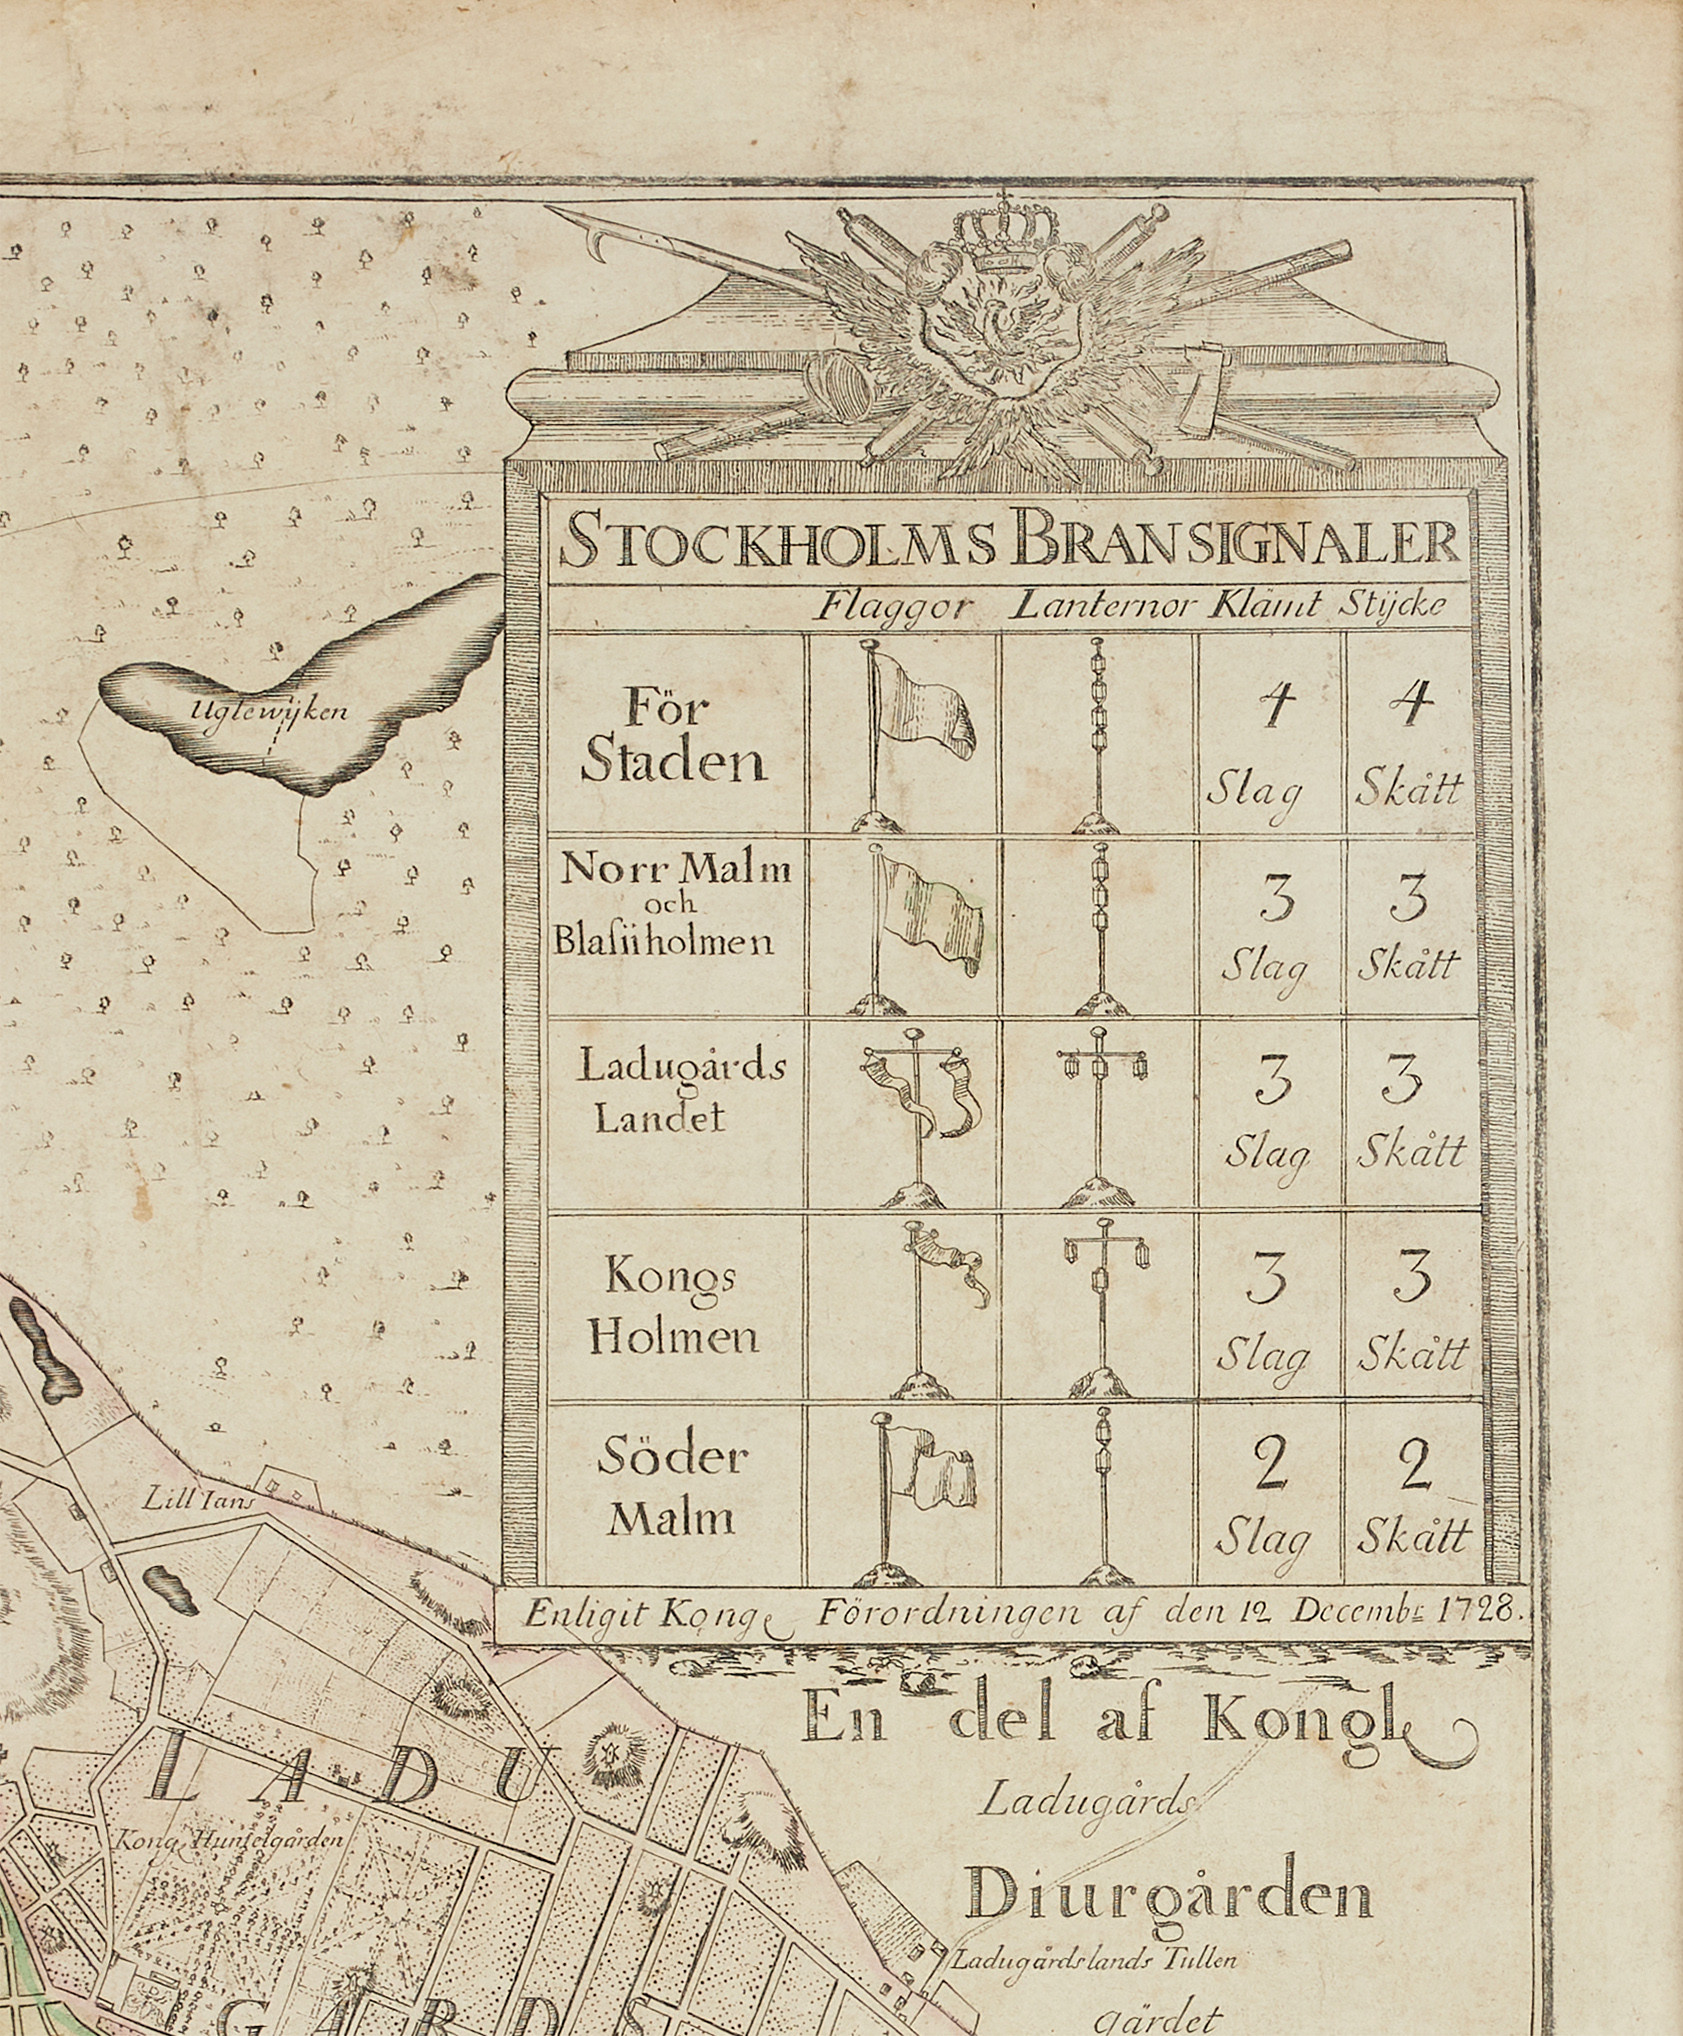 STOCKHOLMS BRANSIGNALER
Flaggor Lanternor Klämt Stÿcke
För
Staden
4
Slag
4
Skått
Norr Malm
och
Blasiiholmen
3
Slag
3
Skått
Ladugårds
Landet
3
Slag
3
Skått
Kongs
Holmen
3
Slag
3
Skått
Söder
Malm
2
Slag
2
Skått
Enligit Kong Förordningen af den 12 Decemb: 1728.
Uglewÿken
Lill Ians
En del af Kongl
Ladugårds
Diurgården
Ladugårdslands Tullen
Gärdet
LADU
Kong Humlegården
GÅRDS